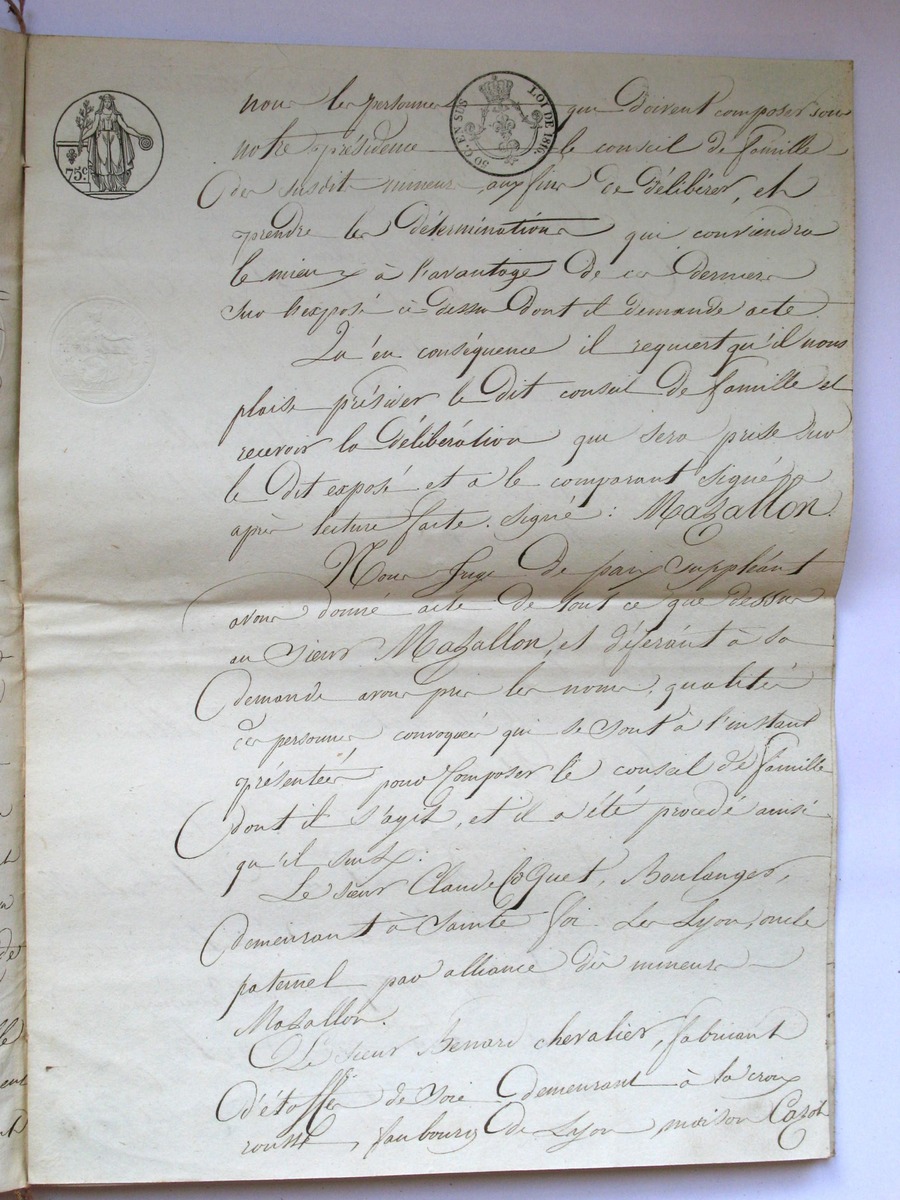 75c
50 C. EN SUS
LOI DE 1816.
nous les personnes qui doivent composer sous
notre présidence le conseil de famille
des susdits mineurs aux fins de délibérer, et
prendre les déterminations qui conviendra
le mieux à l'avantage de ces derniers
sur l'exposé ci dessus dont il demande acte.
Qu'en conséquence il requiert qu'il nous
plaise présider le dit conseil de famille et
recevoir la délibération qui sera prise sur
le dit exposé et a le comparant signé
après lecture faite. signé : Mazallon.
Nous Juge de paix suppléant
avons donné acte de tout ce que dessus
au sieur Mazallon, et déférant à sa
demande avons pris les noms, qualités
des personnes convoquées qui se sont à l'instant
présentées pour composer le conseil de famille
dont il s'agit, et il a été procédé ainsi
qu'il suit :
Le sieur Claude Coquet, Boulanger,
demeurant à Sainte foi Les Lyon, oncle
paternel par alliance des mineurs
Mazallon.
Le sieur Benard chevalier, fabricant
d'étoffes de soie demeurant à la croix
rousse, faubourg de Lyon, maison Cazot